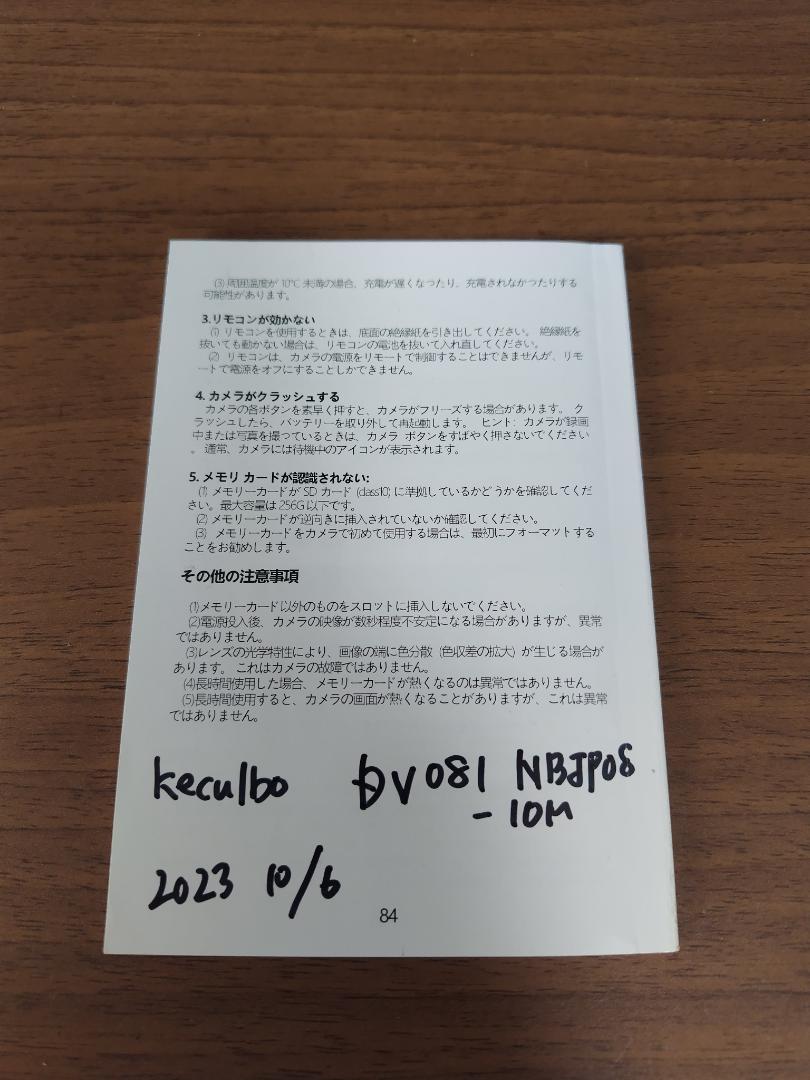 (3) 周囲温度が 10°C 未満の場合、充電が遅くなつたり、充電されなかつたりする
可能性があります。
3.リモコンが効かない
(1) リモコンを使用するときは、底面の絶縁紙を引き出してください。 絶縁紙を
抜いても動かない場合は、リモコンの電池を抜いて入れ直してください。
(2) リモコンは、カメラの電源をリモートで制御することはできませんが、リモ
ートで電源をオフにすることしかできません。
4. カメラがクラッシュする
カメラの各ボタンを素早く押すと、カメラがフリーズする場合があります。 ク
ラッシュしたら、バッテリーを取り外して再起動します。 ヒント: カメラが録画
中または写真を撮っているときは、カメラ ボタンをすばやく押さないでください
。 通常、カメラには待機中のアイコンが表示されます。
5. メモリ カードが認識されない:
(1) メモリーカードが SD カード (class10) に準拠しているかどうかを確認してくだ
さい。最大容量は 256G 以下です。
(2) メモリーカードが逆向きに挿入されていないか確認してください。
(3) メモリーカードをカメラで初めて使用する場合は、最初にフォーマットする
ことをお勧めします。
その他の注意事項
(1)メモリーカード以外のものをスロットに挿入しないでください。
(2)電源投入後、カメラの映像が数秒程度不安定になる場合がありますが、異常
ではありません。
(3)レンズの光学特性により、画像の端に色分散 (色収差の拡大) が生じる場合が
あります。 これはカメラの故障ではありません。
(4)長時間使用した場合、メモリーカードが熱くなるのは異常ではありません。
(5)長時間使用すると、カメラの画面が熱くなることがありますが、これは異常
ではありません。
keculbo DV081 NBJP08
-10M
2023 10/6
84